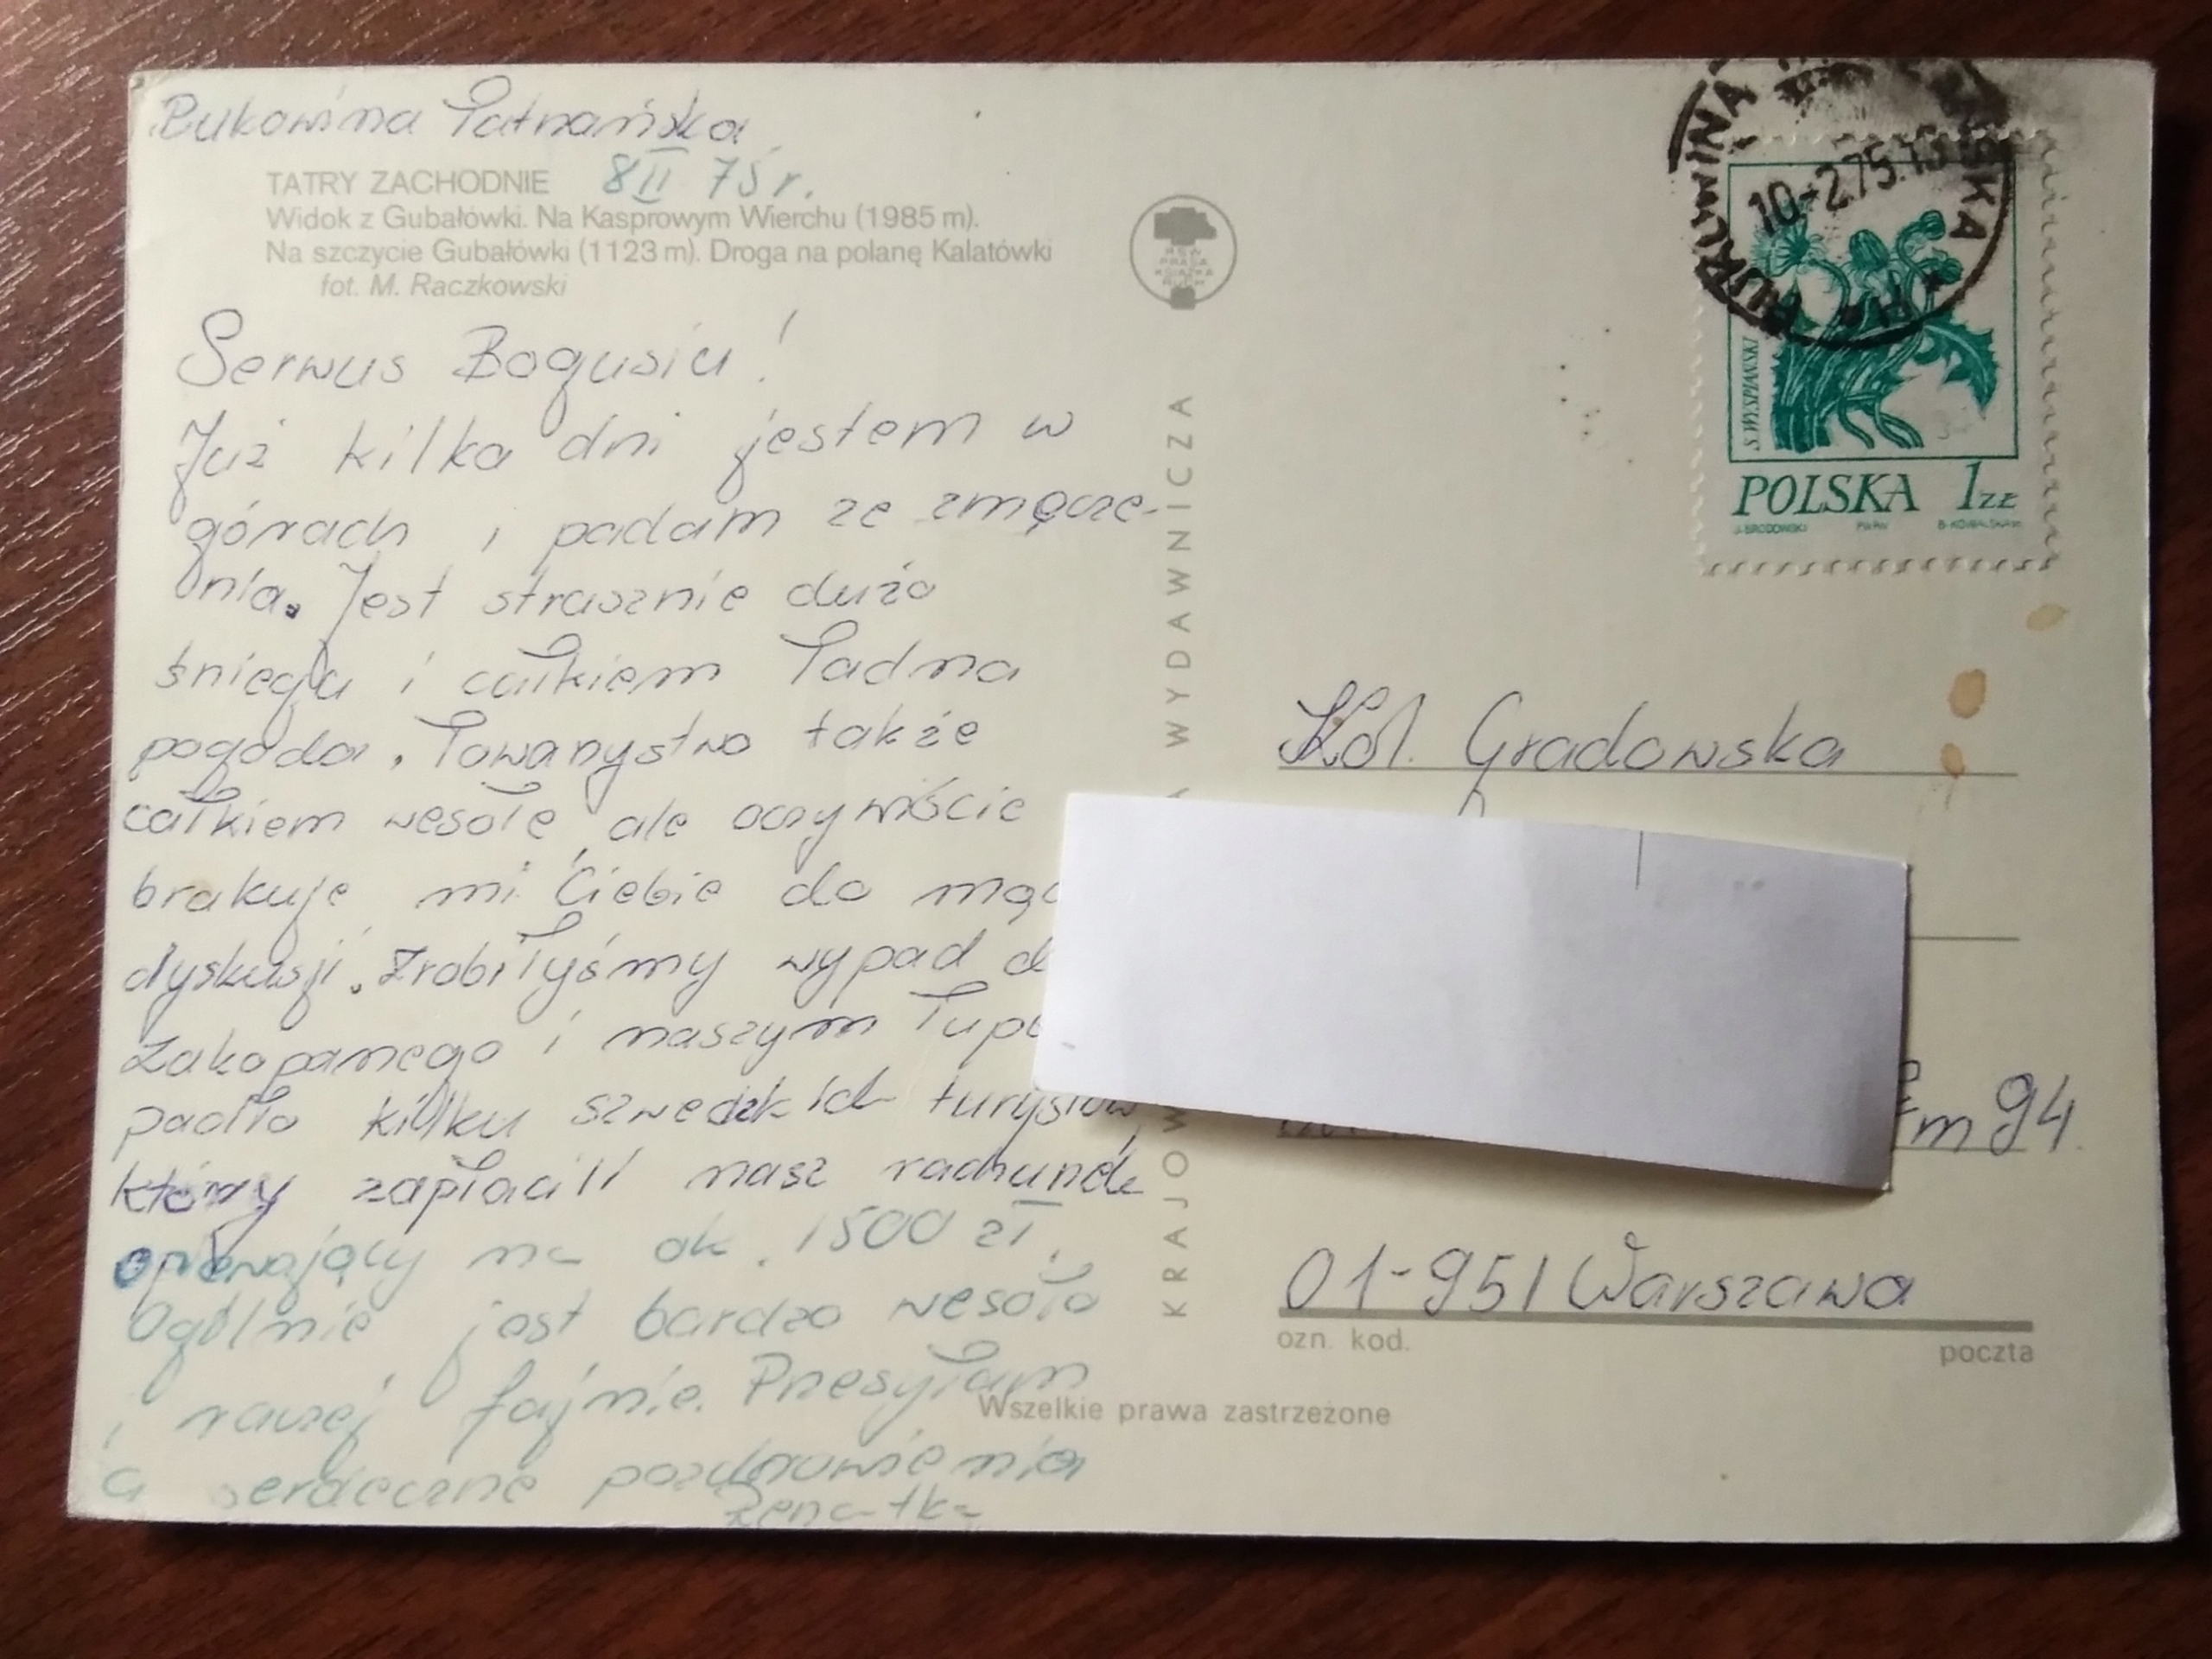 Bukowina Tatrzańska
8 II 75 r.
TATRY ZACHODNIE
Widok z Gubałówki. Na Kasprowym Wierchu (1985 m).
Na szczycie Gubałówki (1123 m). Droga na polanę Kalatówki
fot. M. Raczkowski
Serwus Bogusiu!
Już kilka dni jestem w
górach i padam ze zmęcze-
nia. Jest strasznie dużo
śniegu i całkiem ładna
pogoda. Towarzystwo także
całkiem wesołe, ale oczywiście
brakuje mi Ciebie do
dyskusji. Zrobiłyśmy wypad
Zakopanego i naszym
padło kilku szwedzkich turystów,
którzy zapłacili nasz rachunek
opiewający na ok. 1500 zł.
Ogólnie jest bardzo wesoło
i raczej fajnie. Przesyłam
serdeczne pozdrowienia
Renatka
RSW
PRASA
KSIĄŻKA
RUCH
WYDAWNICZA
BUKOWINA
10-2.75
S. WYSPIAŃSKI
POLSKA 1 ZŁ
Kol. Gradowska
m 94.
01-951 Warszawa
ozn. kod.
poczta
Wszelkie prawa zastrzeżone